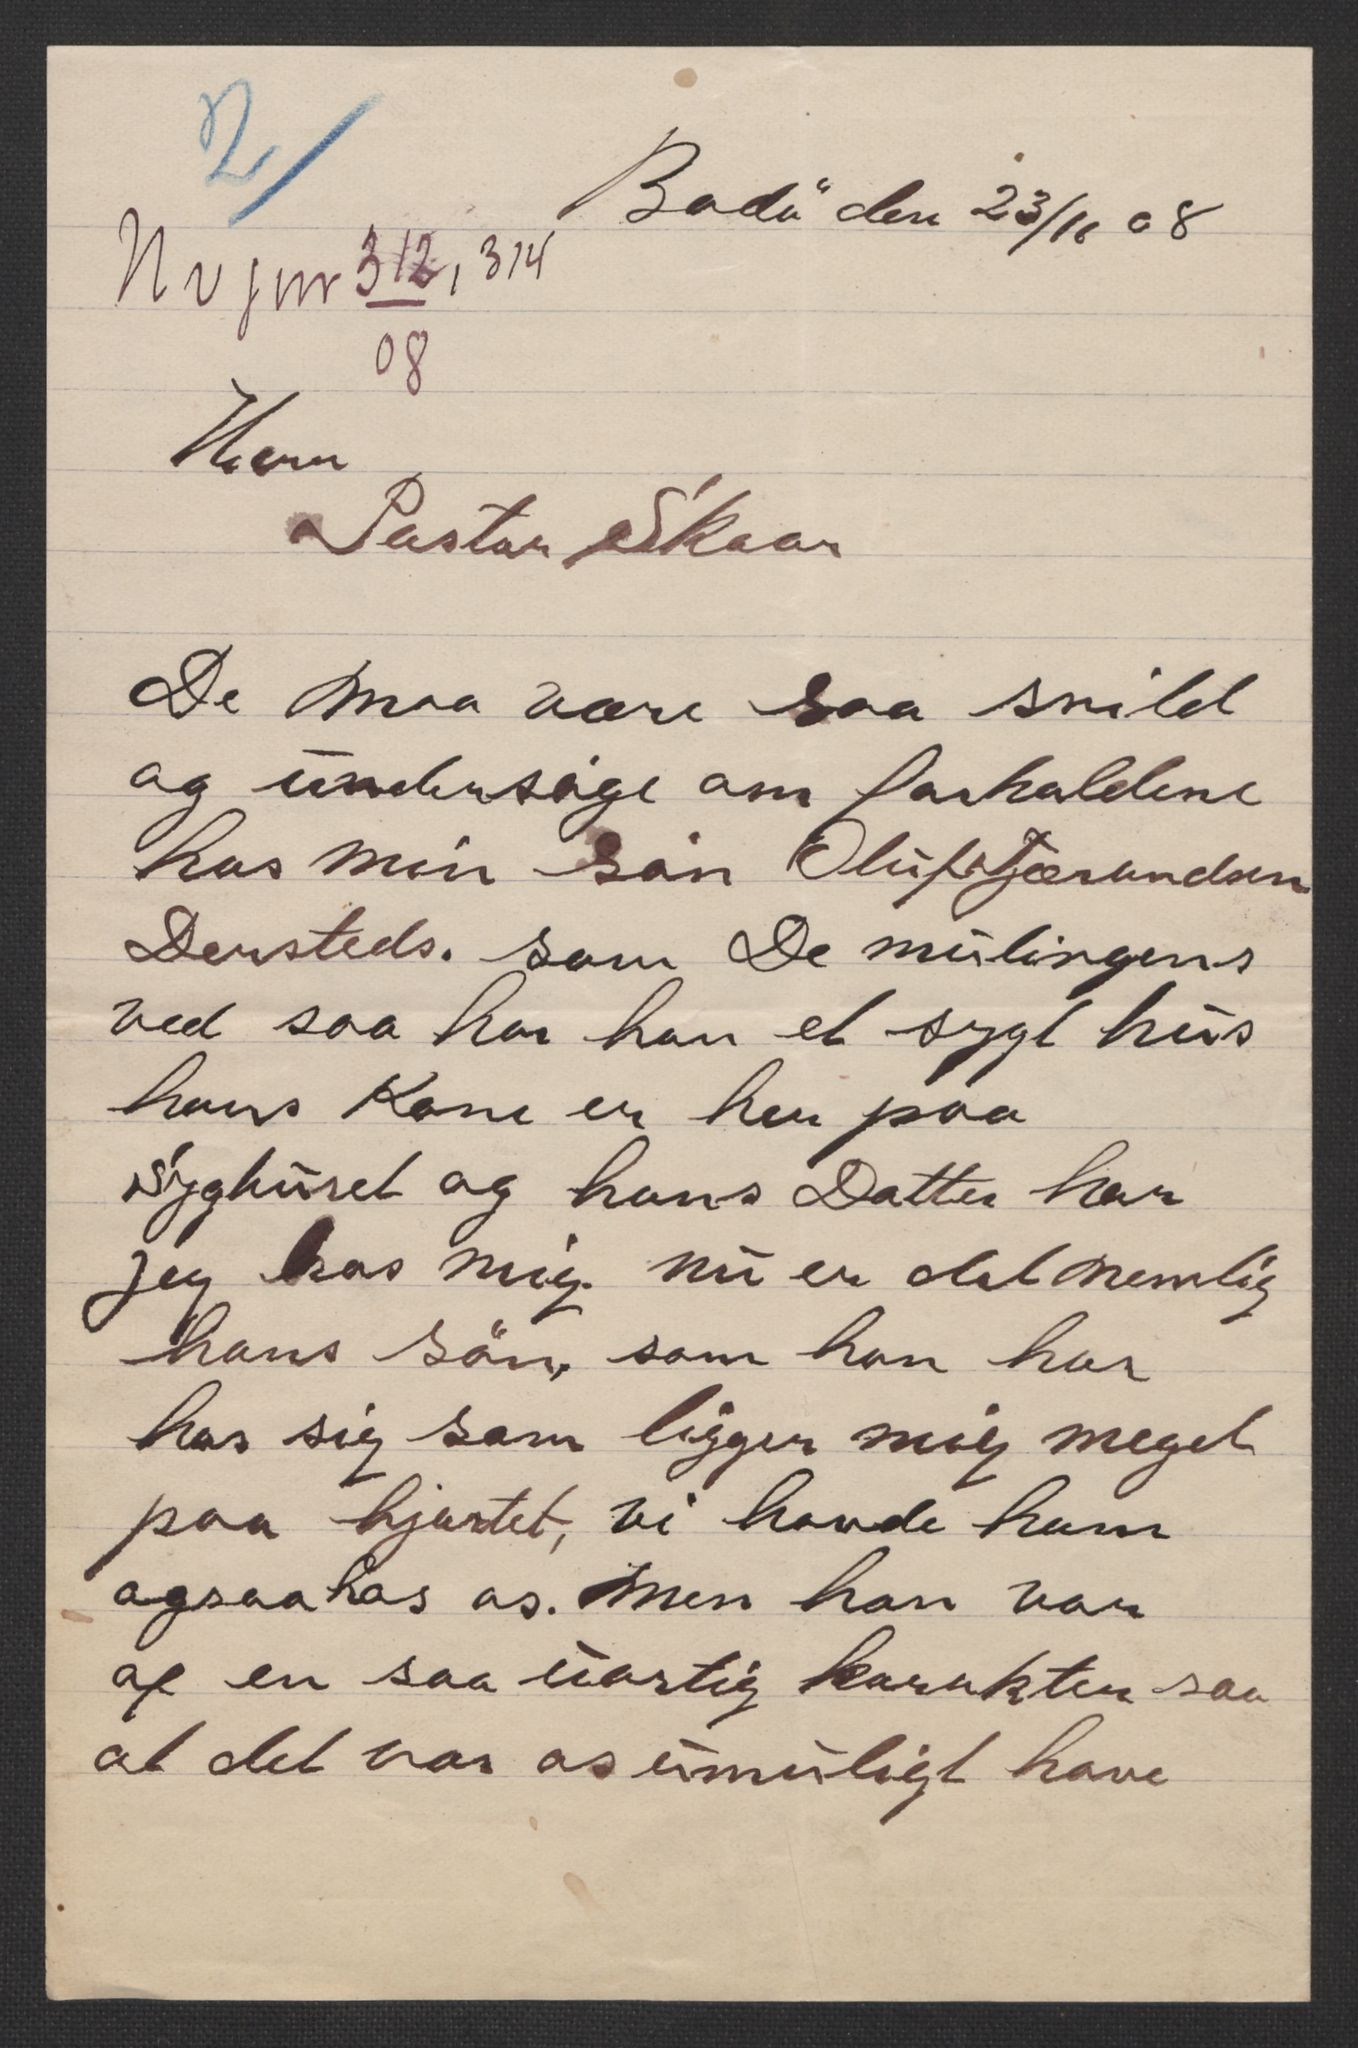 2/
Bodö den 23/11 08
N v jnr 312, 314
08
Herr
Pastor Skaar
De maa være saa snild
og undersøge om forholdene
hos min søn Oluf
Dersteds. som De mulingens
ved saa har han et sygt hus
hans Kone er her paa
Syghuset og hans Datter har
jeg hos mig. nu er det nemlig
hans sön, som han har
hos sig som ligger mig meget
paa hjartet, vi havde ham
ogsaa hos os. Men han var
af en saa uartig karakter saa
at det var os umuligt have